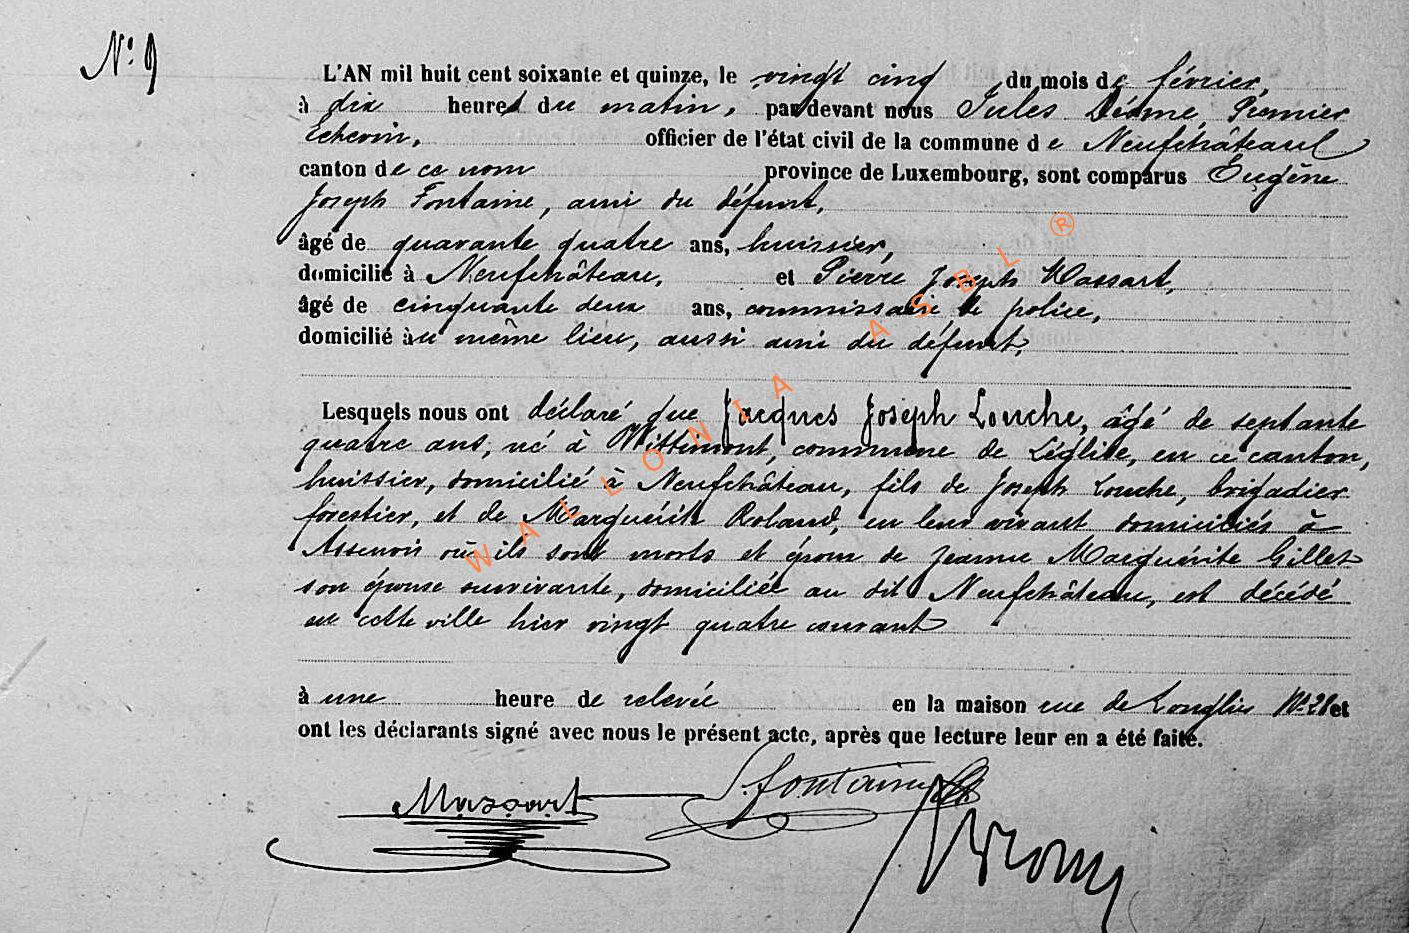 N° 9
L'AN mil huit cent soixante et quinze, le vingt cinq du mois de février,
à dix heures du matin, par devant nous Jules Premier
Echevin, officier de l'état civil de la commune de Neufchâteau
canton de ce nom province de Luxembourg, sont comparus Eugène
Joseph Fontaine, ami du défunt,
âgé de quarante quatre ans, huissier,
domicilié à Neufchâteau, et Pierre Joseph Massart,
âgé de cinquante deux ans, commissaire de police,
domicilié au même lieu, aussi ami du défunt,
Lesquels nous ont déclaré que Jacques Joseph Louche, âgé de septante
quatre ans, né à Wittimont, commune de Léglise, en ce canton,
huissier, domicilié à Neufchâteau, fils de Joseph Louche, brigadier
forestier, et de Marguérite Roland, en leur vivant domiciliés à
Assenois où ils sont morts et époux de Jeanne Marguérite Gillet
son épouse survivante, domiciliée au dit Neufchâteau, est décédé
en cette ville hier vingt quatre courant
à une heure de relevée en la maison rue de Longlier N° 28 et
ont les déclarants signé avec nous le présent acte, après que lecture leur en a été faite.
Massart Fontaine
WALLONIA ASBL ®